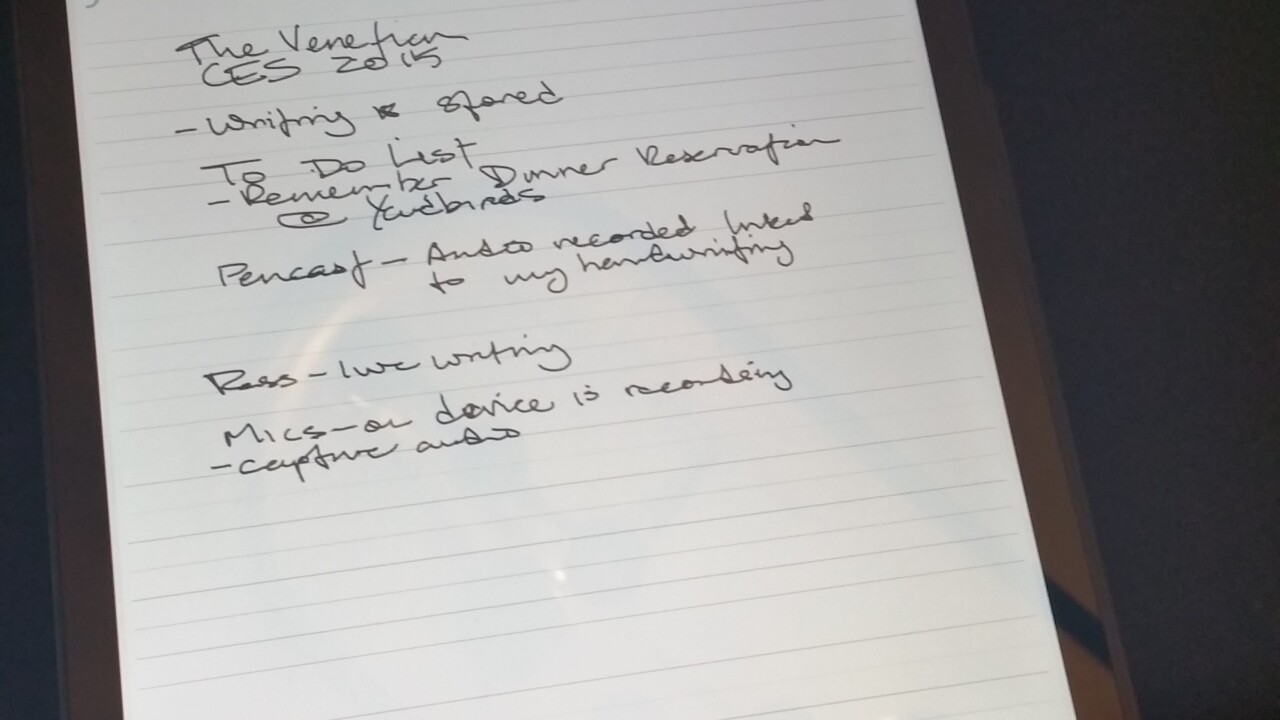 The Venetian
CES 2015
- Writing is stored
To Do List
- Remember Dinner Reservation
@ Yardbirds
Pencast - Audio recorded linked
to my handwriting
Russ - live writing
Mics - on device is recording
- capture audio